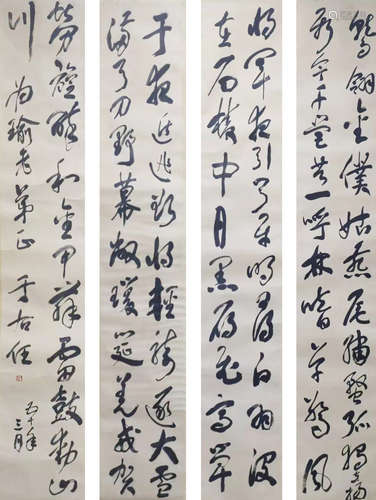 鷲翎金僕姑燕尾繡蝥弧獨立揚
新令千營共一呼林暗草驚風
將軍夜引弓平明尋白羽沒
在石棱中月黑雁飛高單
于夜遁逃欲將輕騎逐大雪
滿弓刀野幕敞瓊筵羌戎賀
勞旋醉和金甲舞雷鼓動山
川
為瑜老弟正 于右任
五十年
三月